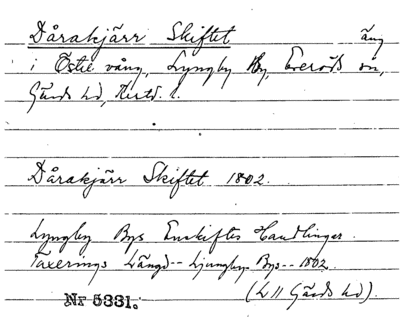 Dårakjärr Skiftet äng
i Östre vång, Lyngby by, Everöds sn,
Gärds hd, Krist. l.
Dårakjärr Skiftet 1802.
Lyngby Bys Enskiftes Handlingar.
Taxerings Längd -- Ljungby Bys -- 1802.
(L 11 Gärds hd).
Nr 5331.